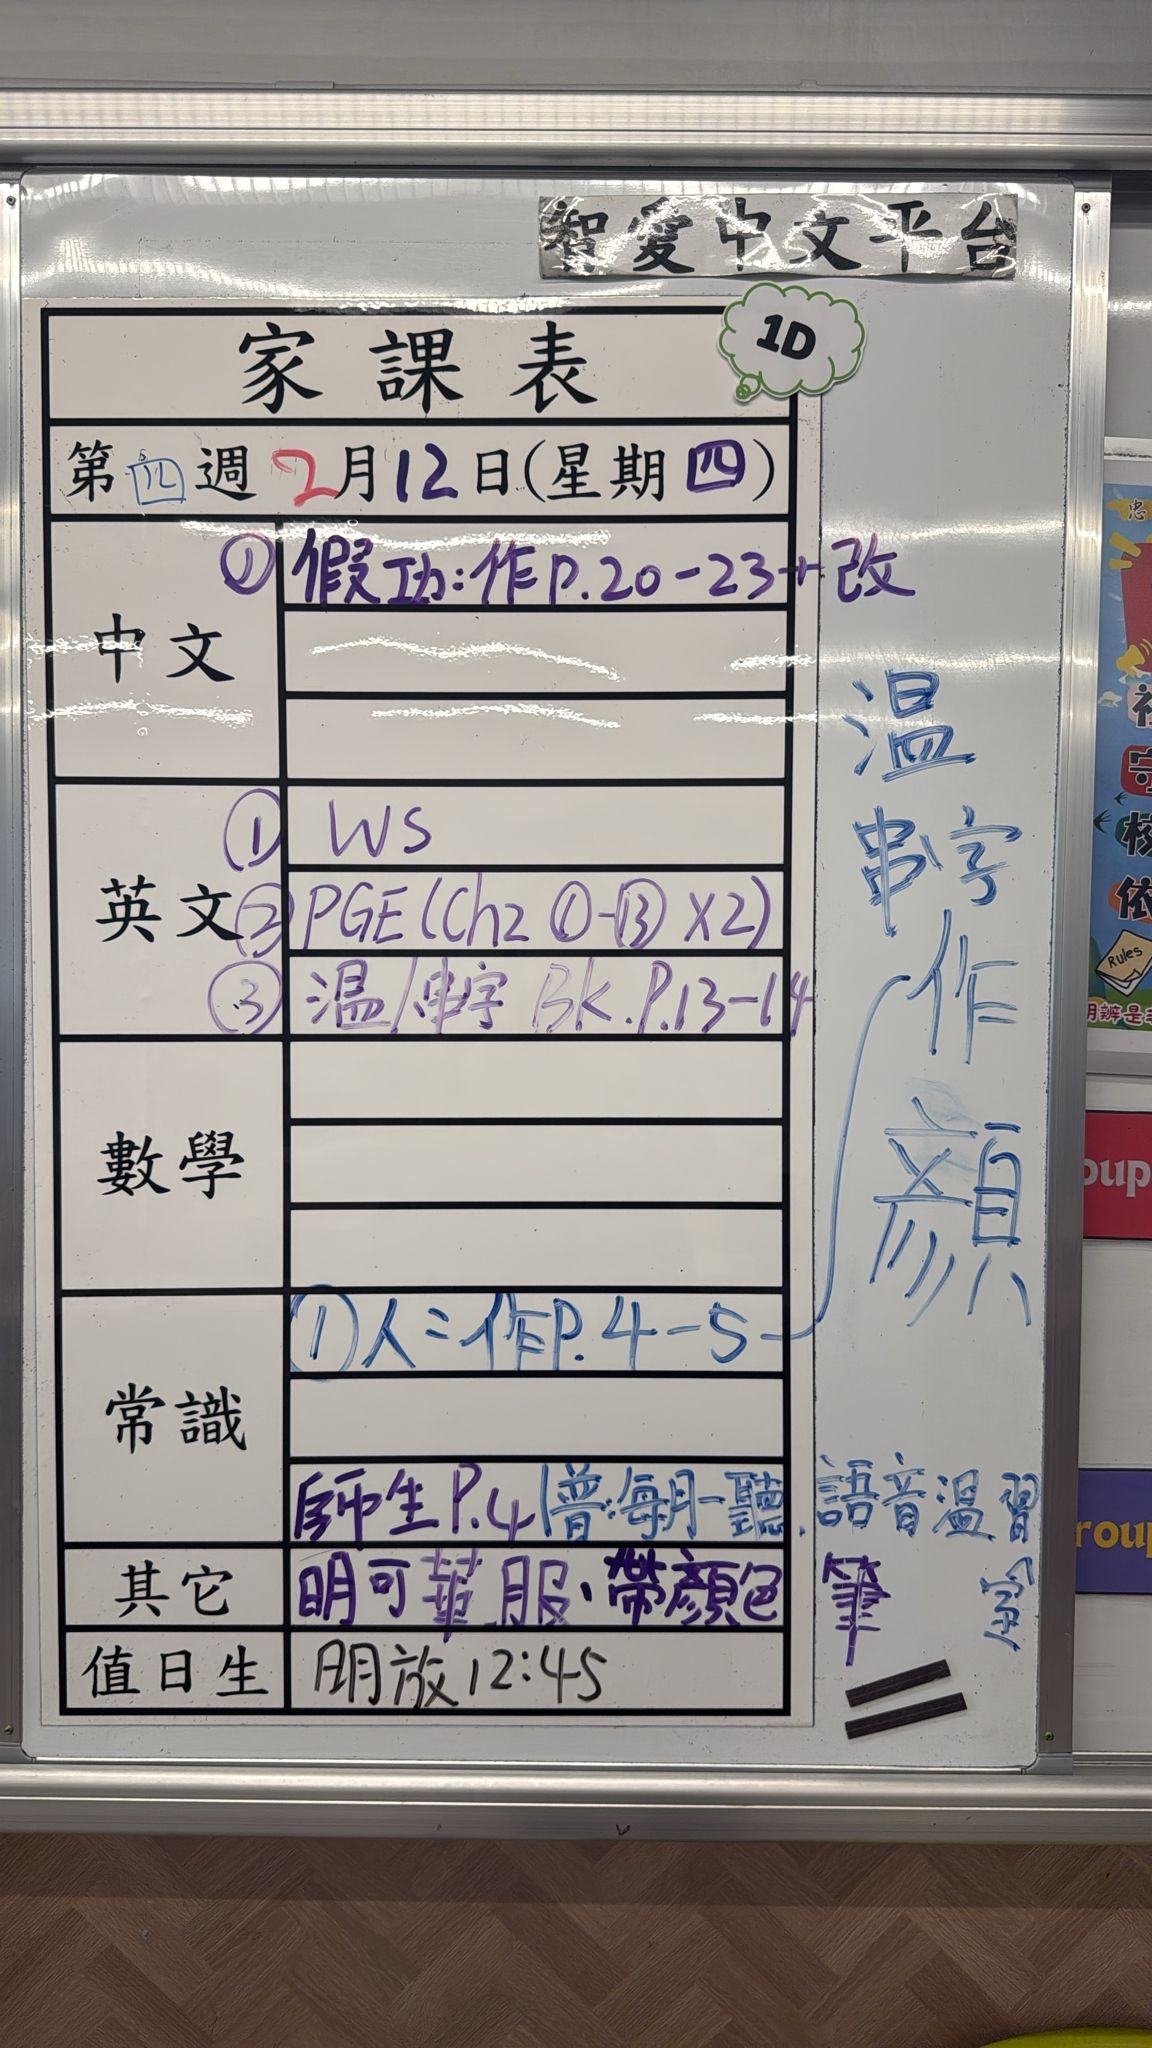 智愛中文平台
家課表
1D
第四週 2月12日(星期四)
中文
① 假功:作P.20-23+改
英文
① WS
② PGE(Ch2 ①-⑬ X2)
③ 溫/串字 BK.P.13-14
數學
常識
① 人=作P.4-5
師生P.4 普:每月一聽.語音溫習
其它
明可華服、帶顏色筆
值日生
明放12:45
溫
串字
作
顏
忠
守
依
Rules
oup
roup